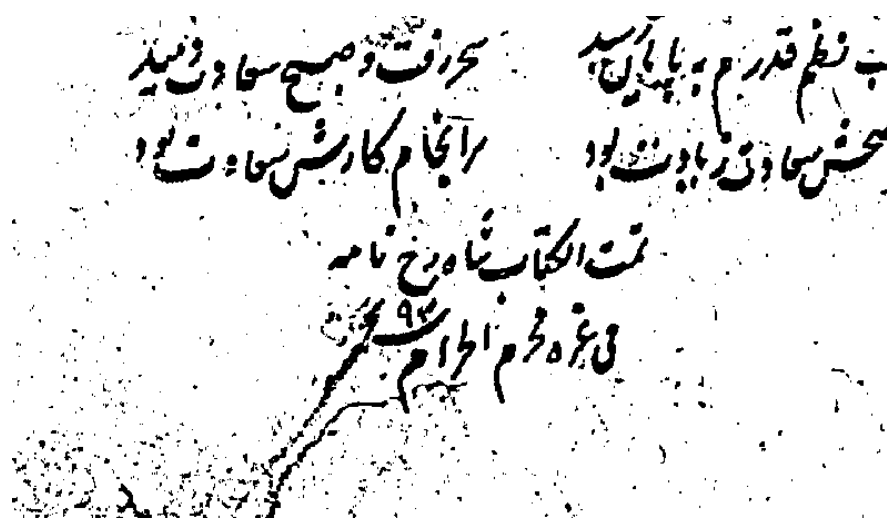 نظم قدرم به پایان رسید سحر رفت و صبح سعادت دمید
سعادت زیادت بود سرانجام کارش سعادت بود
تمت الکتاب شاهرخ نامه
فی غره محرم الحرام سنه